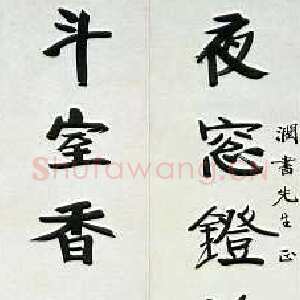 潤書先生正
夜窓鐙
斗室香
Shufawang.cn